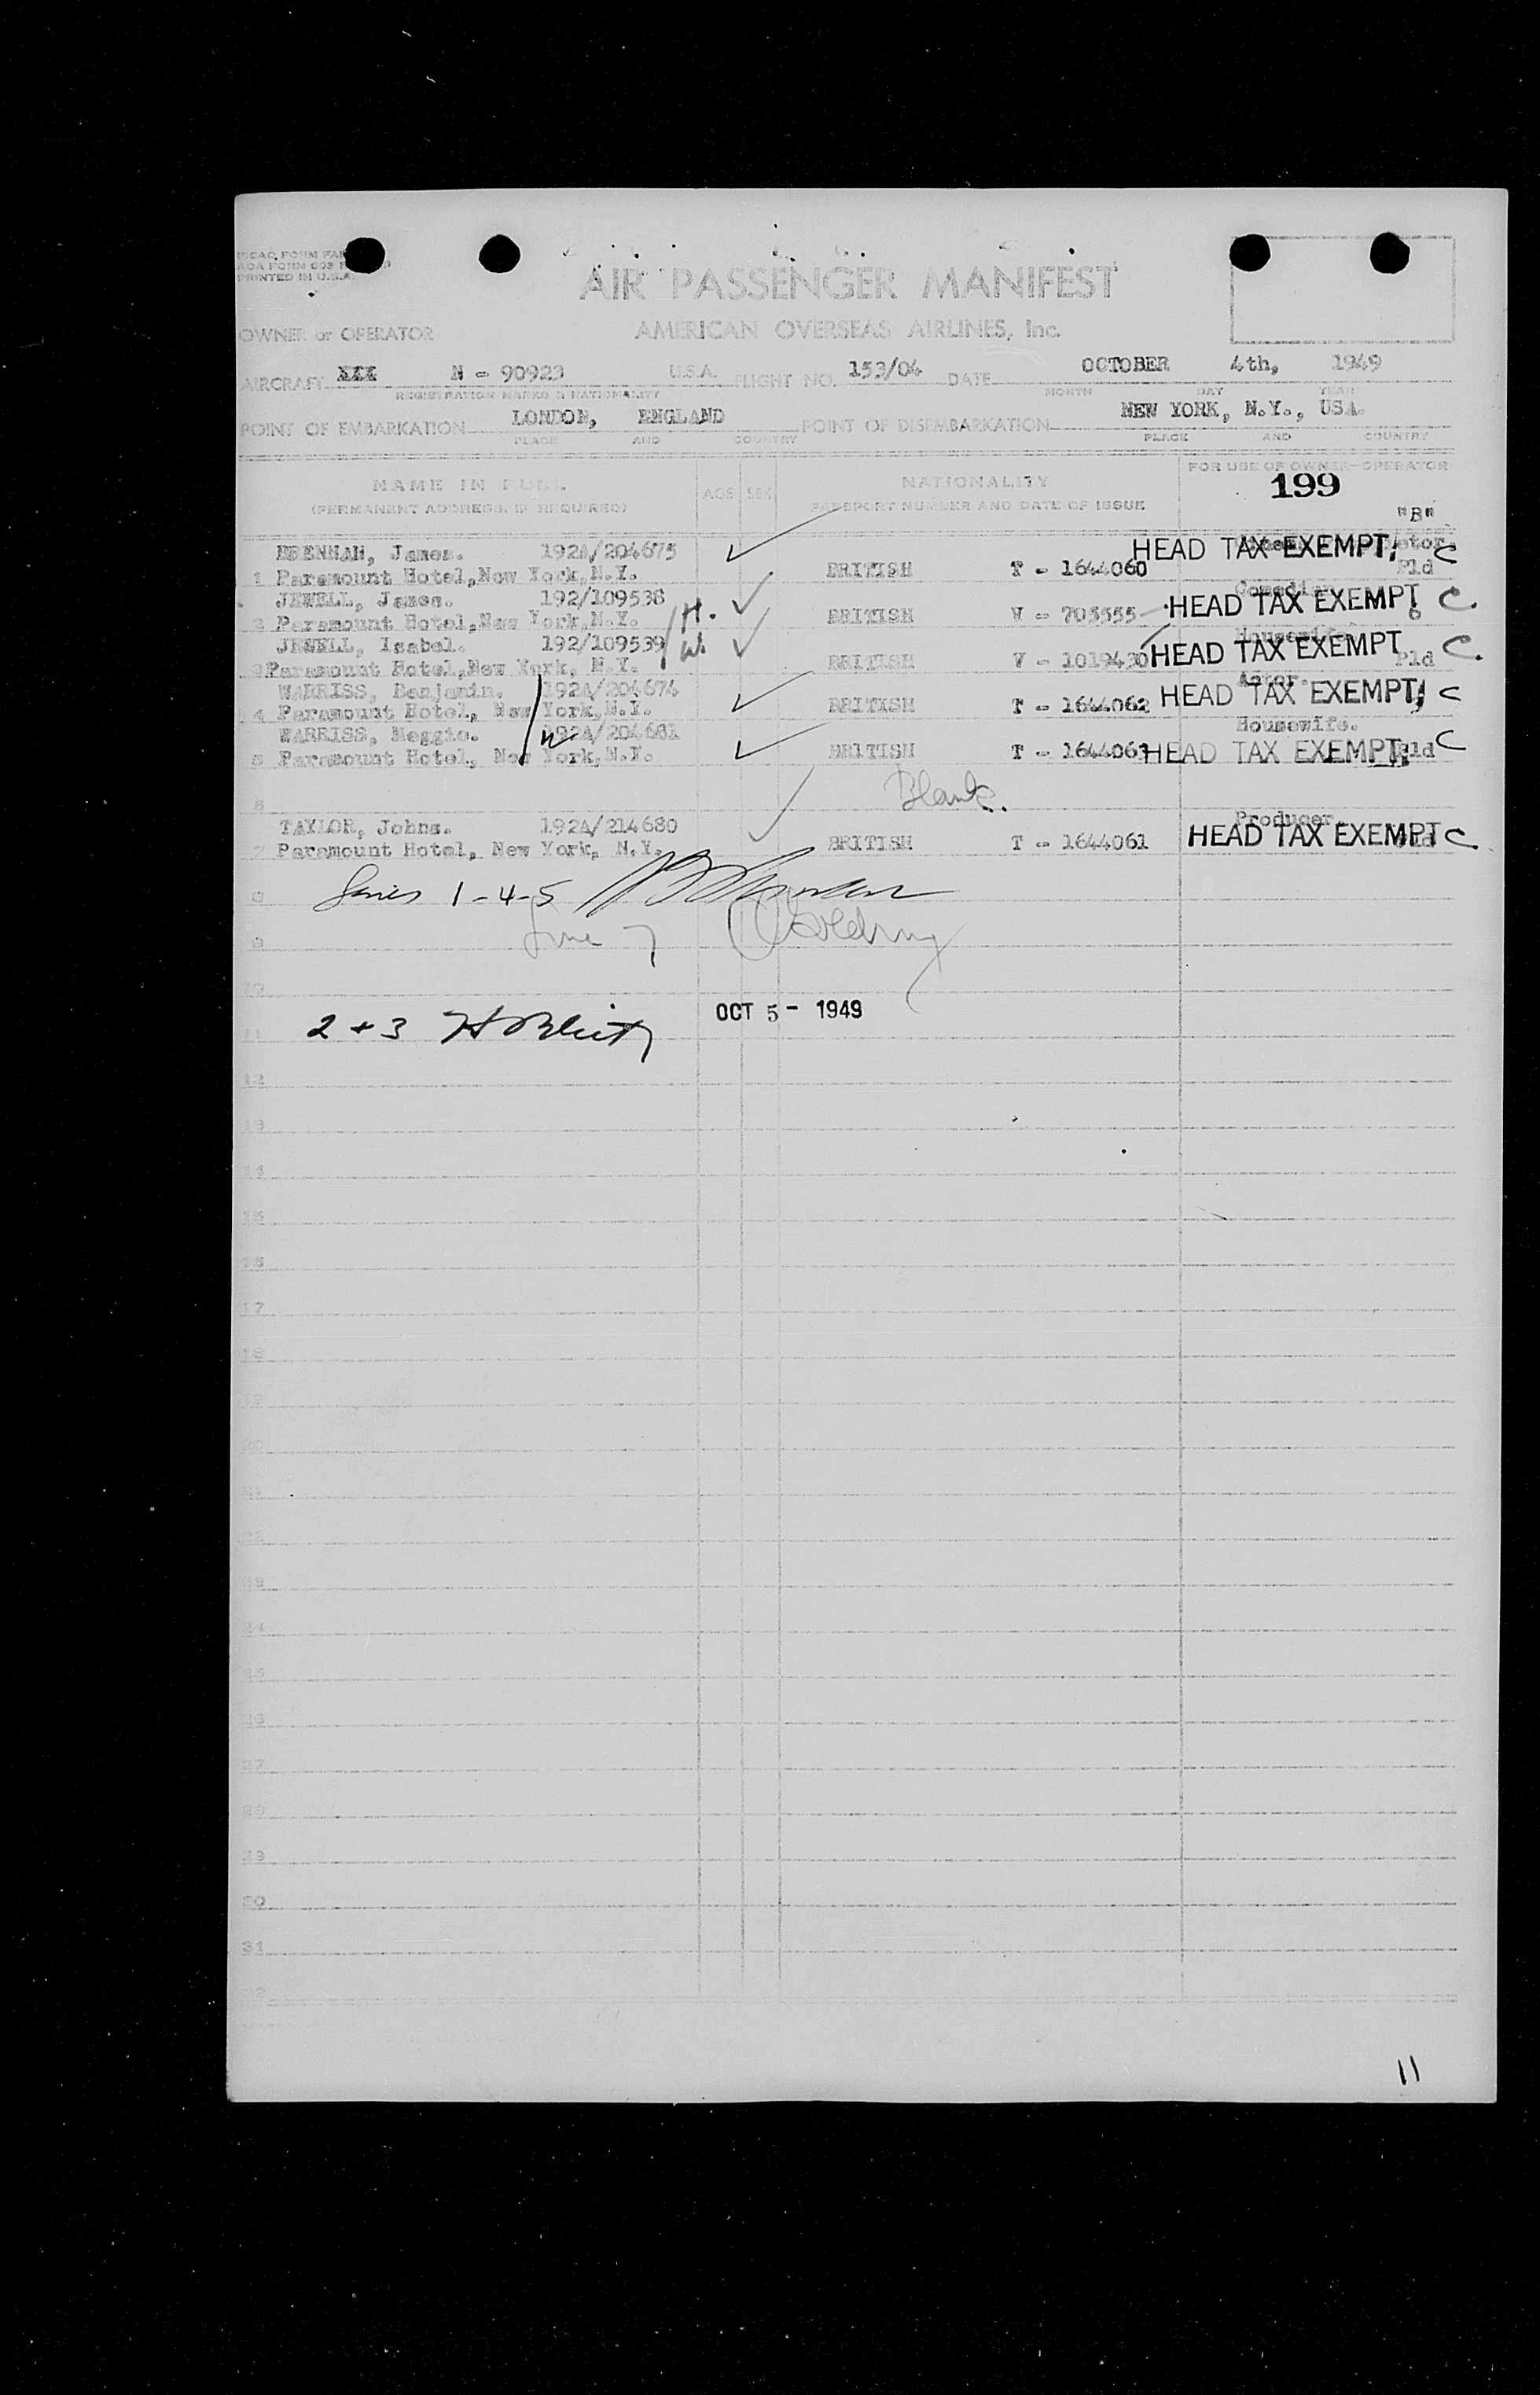 PRINTED IN U.S.A.
AIR PASSENGER MANIFEST
OWNER or OPERATOR AMERICAN OVERSEAS AIRLINES, Inc.
AIRCRAFT XXX N - 90923 U.S.A. FLIGHT NO. 153/04 DATE OCTOBER 4th, 1949
REGISTRATION MARKS & NATIONALITY MONTH DAY YEAR
POINT OF EMBARKATION LONDON, ENGLAND POINT OF DISEMBARKATION NEW YORK, N.Y., USA.
PLACE AND COUNTRY PLACE AND COUNTRY
NAME IN FULL AGE SEX NATIONALITY FOR USE OF OWNER-OPERATOR
(PERMANENT ADDRESS, IF REQUIRED) PASSPORT NUMBER AND DATE OF ISSUE 199
"B"
BRENNAN, James. 192A/204675 HEAD TAX EXEMPT C
1 Paramount Hotel, New York, N.Y. BRITISH T - 1644060 Pld
JEWELL, James. 192/109538 Comedian HEAD TAX EXEMPT C.
2 Paramount Hotel, New York, N.Y. H. BRITISH V - 705555
JEWELL, Isabel. 192/109539 W. Housewife. HEAD TAX EXEMPT C.
3 Paramount Hotel, New York, N.Y. BRITISH V - 1019430 Pld
WARRISS, Benjamin. 192A/204674 Actor. HEAD TAX EXEMPT C
4 Paramount Hotel, New York, N.Y. BRITISH T - 1644062
WARRISS, Meggie. 192A/204681 W Housewife. C
5 Paramount Hotel, New York, N.Y. BRITISH T - 1644063 HEAD TAX EXEMPT Pld
6 Blank.
TAYLOR, Johns. 192A/214680 Producer. HEAD TAX EXEMPT C
7 Paramount Hotel, New York, N.Y. BRITISH T - 1644061
8 Lines 1-4-5
9 Line 7
10
OCT 5 - 1949
11 2 + 3
12
13
14
15
16
17
18
19
20
21
22
23
24
25
26
27
28
29
30
31
32
11